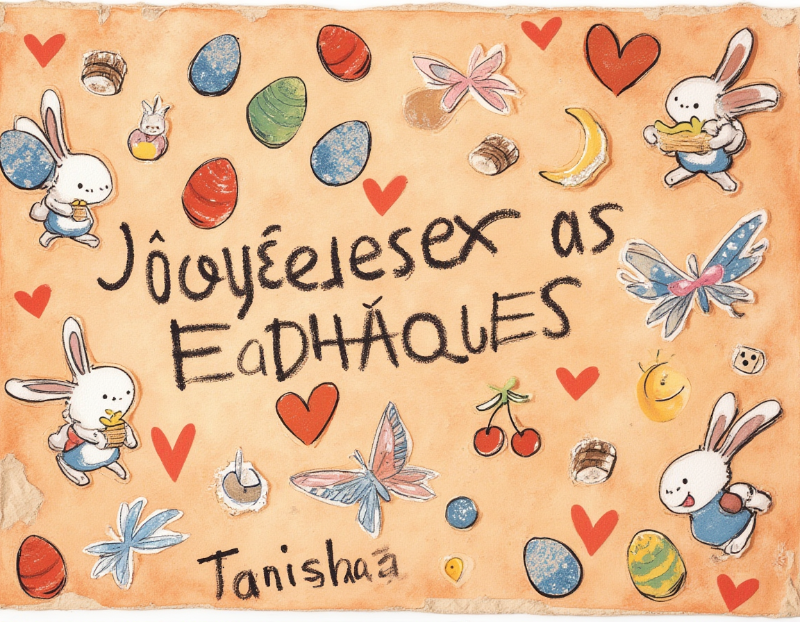 Jôoyéelesex as
EaDHǍQUES
Tanishaā